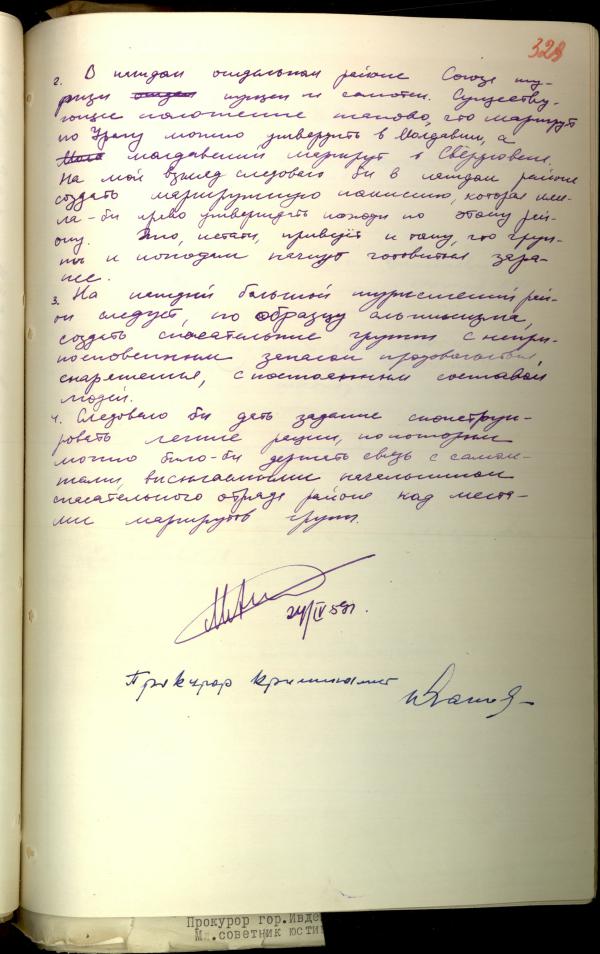 328
2. В каждом отдельном районе Союза ту-
ризм нужен и самотек. Существу-
ющее положение таково, что маршрут
по Уралу можно утвердить в Молдавии, а
молдавский маршрут в Свердловске.
На мой взгляд следовало би в каждом районе
создать маршрутную комиссию, которая име-
ла-би право утверждать походи по этому рай-
ону. Это, кстати, приведёт к тому, что груп-
пы и к походам начнут готовиться зара-
нее.
3. На каждий большой туристический рай-
он следует, по образцу альпинизма,
создать спасательние группи с непри-
косновенним запасом продовольствия,
снаряженья, с постоянным составом
людей.
4. Следовало би дать задание сконструи-
ровать легкие рации, по которым
можно било-би держать связь с самоле-
тами, висилаемими начальником
спасательного отряда района над места-
ми маршрутов групп.
24/IV 59г.
Прокурор криминалист
Иванов
Прокурор гор.Ивде
Мл.советник юсти